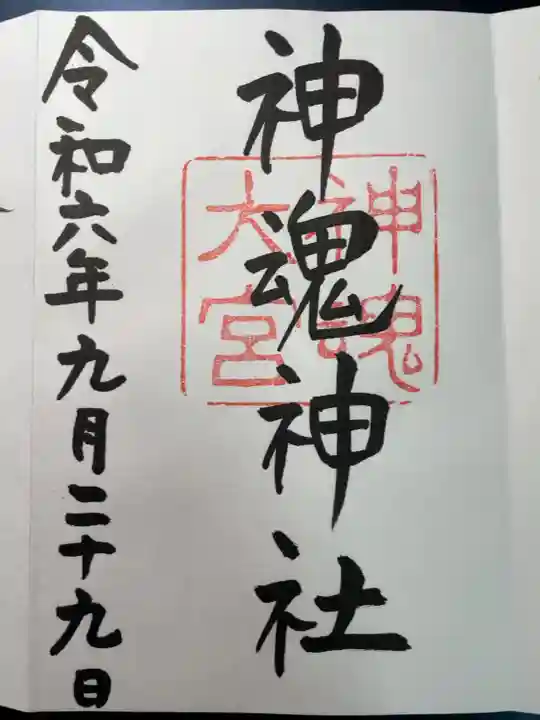 神魂神社
神魂
大宮
令和六年九月二十九日